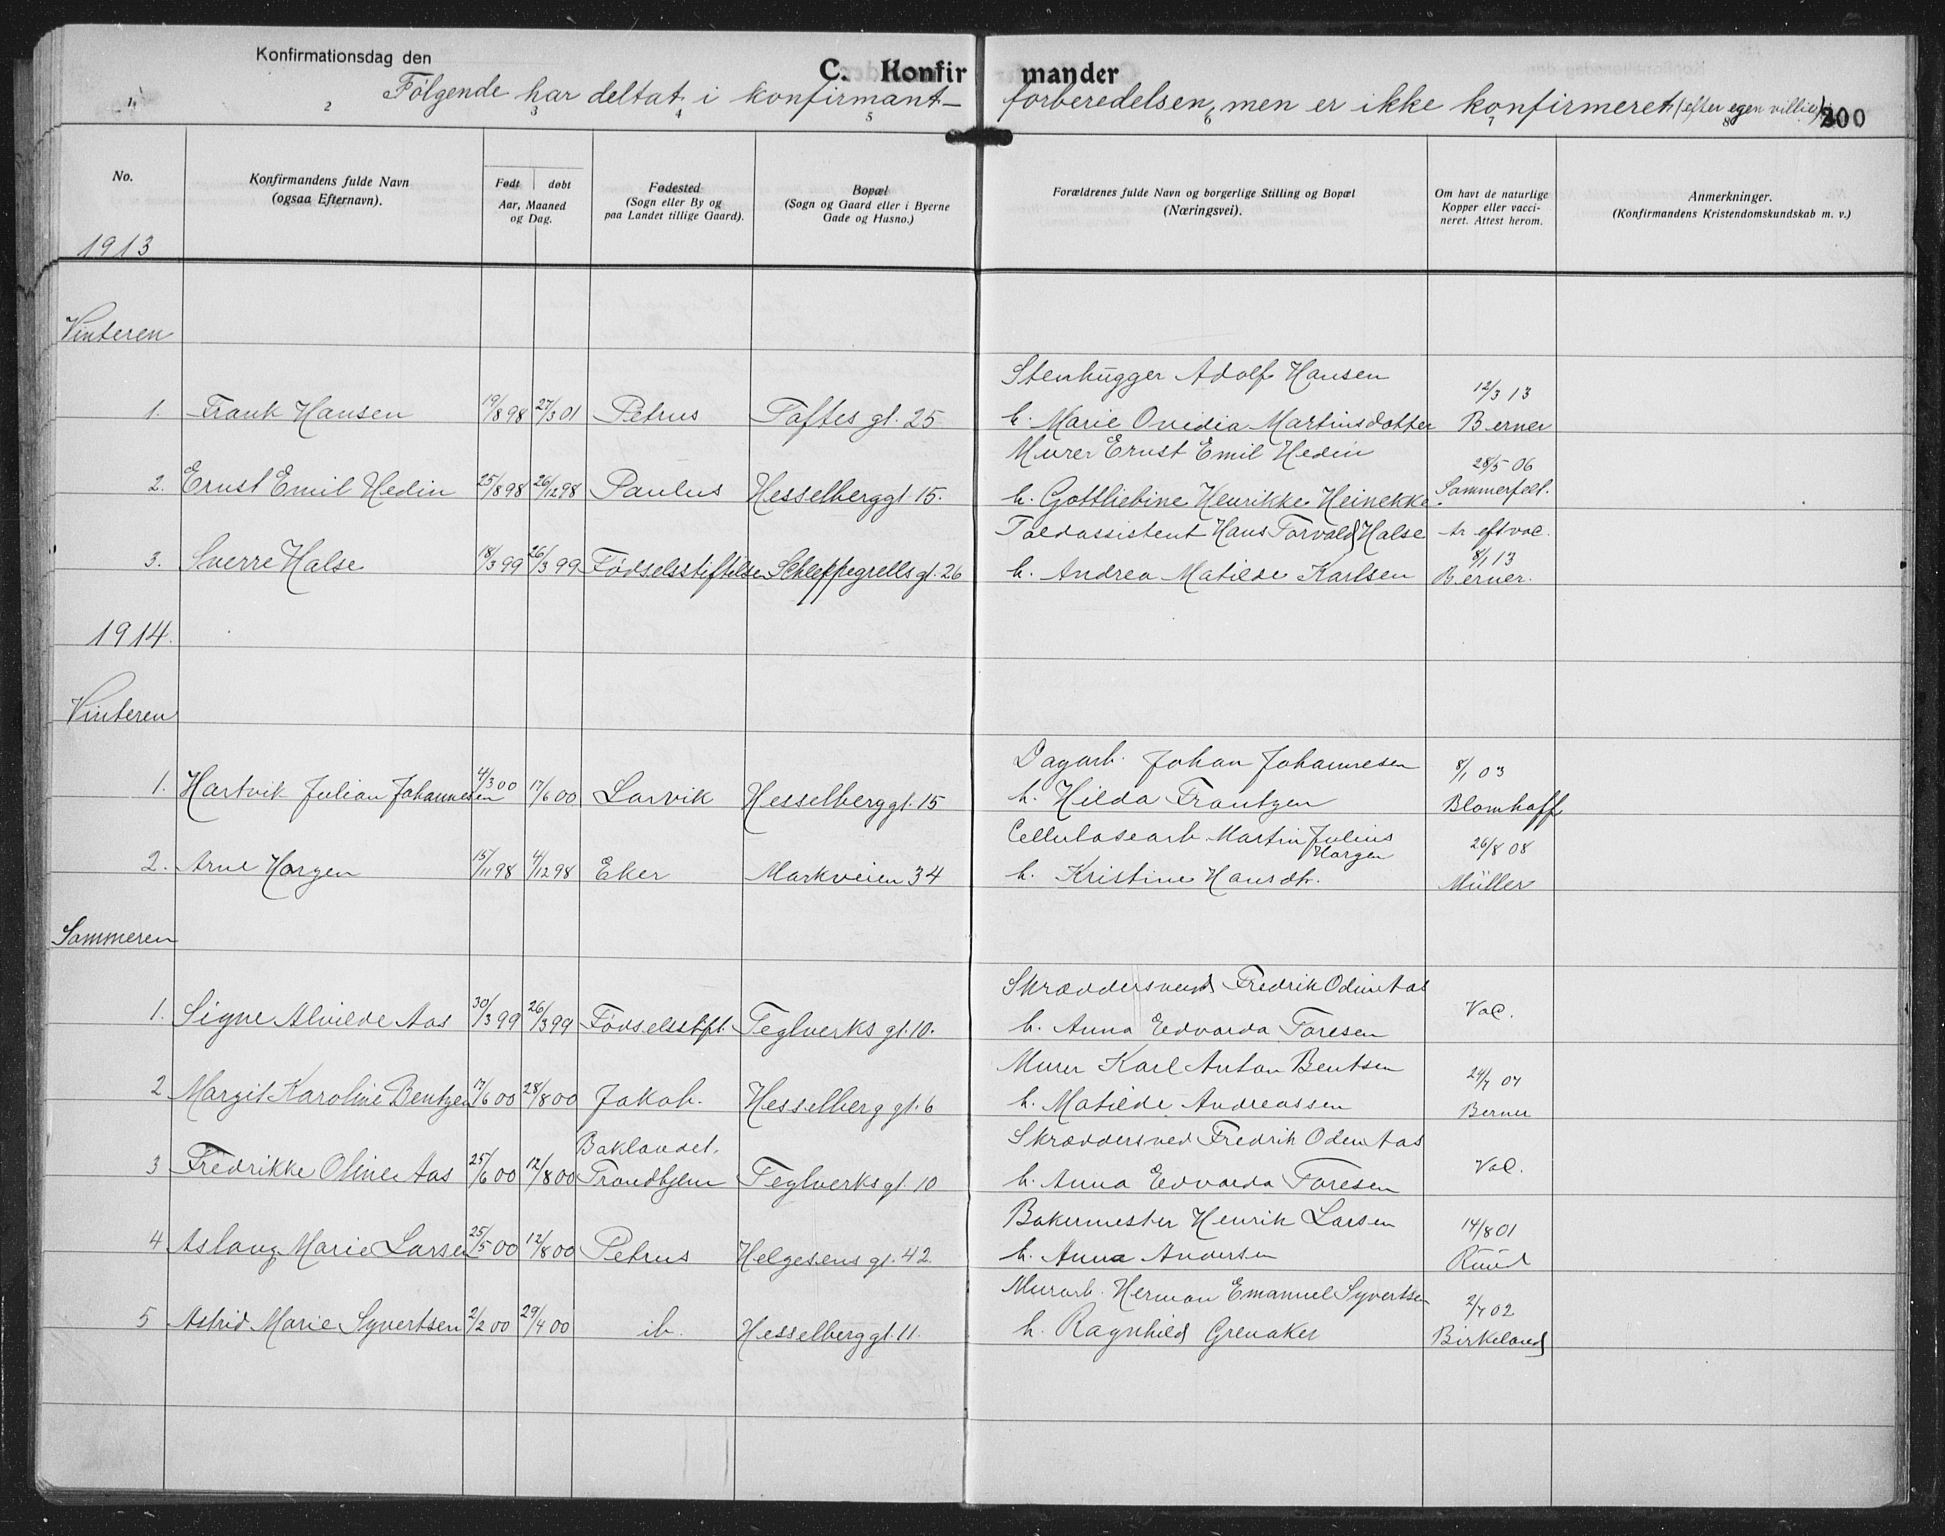 Konfirmationsdag den
C. Konfirmander
Følgende har deltat i konfirmant-forberedelsen, men er ikke konfirmeret (efter egen villie)
200
1 2 3 4 5 6 7 8
No.
Konfirmandens fulde Navn
(ogsaa Efternavn).
Født døbt
Aar, Maaned
og Dag.
Fødested
(Sogn eller By og
paa Landet tillige Gaard).
Bopæl
(Sogn og Gaard eller i Byerne
Gade og Husno.)
Forældrenes fulde Navn og borgerlige Stilling og Bopæl
(Næringsvei).
Om havt de naturlige
Kopper eller vacci-
neret. Attest herom.
Anmerkninger.
(Konfirmandens Kristendomskundskab m. v.)
1913
Vinteren
Stenhugger Adolf Hansen 12/3 13
1. Frank Hansen 19/8 98 27/3 01 Petrus Toftes gt. 25 h. Marie Ovidia Martinsdotter Berner
Murer Ernst Emil Hedin 28/5 06
2. Ernst Emil Hedin 25/8 98 26/12 98 Paulus Hesselberggt. 15. h. Gottliebine Henrikke Heinekke. Sommerfelt.
Toldassistent Hans Torvald Halse tr. eft vac. 8/1 13
3. Sverre Halse 18/3 99 26/3 99 Fødselsstiftelsen Schleppegrells gt. 26 h. Andrea Matilde Karlsen Berner.
1914.
Vinteren
Dagarb. Johan Johannesen 8/1 03
1. Hartvik Julian Johannesen 4/3 00 17/6 00 Larvik Hesselberggt. 15 h. Hilda Frantzen Blomhoff
Cellulosearb. Martin Julius Horgen 26/8 08
2. Arne Horgen 15/11 98 4/12 98 Eker Markveien 34 h. Kristine Hansdtr. Müller
Sommeren
Skræddersvend Fredrik Odin Aas
1. Signe Alvilde Aas 30/3 99 26/3 99 Fødselsstift. Teglverks gt. 10. h. Anna Edvarda Toresen Vac.
Murer Karl Anton Bentsen 24/7 07
2 Margit Karoline Bentzen 17/6 00 28/8 00 Jakob. Hesselberg gt. 6 h. Matilde Andreassen Berner
Skræddersved Fredrik Oden Aas
3 Fredrikke Oline Aas 25/6 00 12/8 00 Baklandet. Trondhjem Teglverks gt 10 h. Anna Edvarda Toresen Vac.
Bakermester Henrik Larsen 14/8 01
4 Aslaug Marie Larsen 25/5 00 12/8 00 Petrus Helgesens gt. 42. h. Anna Andersen Ruud
Murarb. Herman Emanuel Syvertsen 2/7 02
5 Astrid Marie Syvertsen 2/2 00 29/4 00 ib. Hesselberggt. 11. h. Ragnhild Grenaker Birkeland